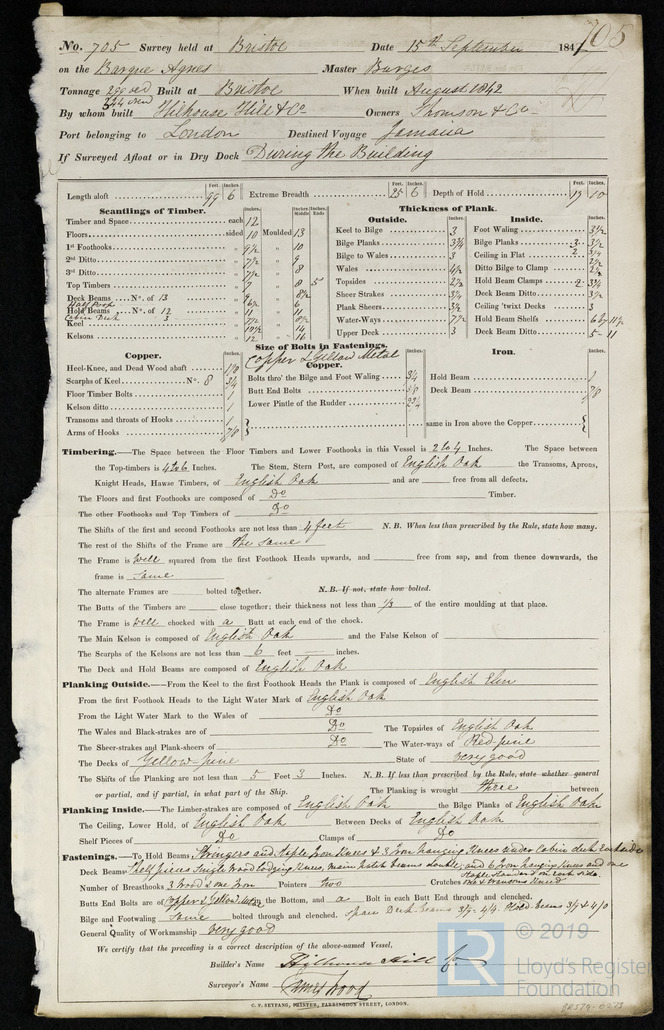 705
No. 705 Survey held at Bristol Date 15th September 184
on the Barque Agnes Master Burges
Tonnage 299 old 344 new Built at Bristol When built August 1842
By whom built Hilhouse Hill & Co Owners Thomson & Co
Port belonging to London Destined Voyage Jamaica
If Surveyed Afloat or in Dry Dock During the Building
Feet. Inches. Feet. Inches. Feet. Inches.
Length aloft 99 6 Extreme Breadth 25 6 Depth of Hold 17 10
Scantlings of Timber. Inches Middle Inches Ends
Timber and Space each 12
Floors sided 10 Moulded 13
1st Foothooks „ 9½ „ 10
2nd Ditto „ 7½ „ 9
3rd Ditto „ 7½ „ 8
Top Timbers „ 7 „ 8 5
Deck Beams No. of 13 „ 9 „ 8½
Half Poop
Hold Beams No. of 12 „ 11 „ 11
Cabin Deck 3
Keel
Kelsons
Thickness of Plank.
Outside. Inches.
Keel to Bilge 3
Bilge Planks 3¾
Bilge to Wales 3
Wales 4½
Topsides 2¾
Sheer Strakes 3¼
Plank Sheers 3½
Water-Ways 7½
Upper Deck 3
Inside. Inches.
Foot Waling 3½
Bilge Planks 3 3½
Ceiling in Flat 2
Ditto Bilge to Clamp
Hold Beam Clamps 2 3¼
Deck Beam Ditto 3½
Ceiling 'twixt Decks 3
Hold Beam Shelfs
Deck Beam Ditto 5 - 11
Size of Bolts in Fastenings.
Copper & Yellow Metal
Copper. Inches.
Heel-Knee, and Dead Wood abaft
Scarphs of Keel No. 8 ¾
Floor Timber Bolts 1
Kelson ditto 1
Transoms and throats of Hooks 1
Arms of Hooks 7/8
Copper. Inches.
Bolts thro' the Bilge and Foot Waling ¾
Butt End Bolts 5/8
Lower Pintle of the Rudder 2¾
Iron. Inches.
Hold Beam 1
Deck Beam 7/8
same in Iron above the Copper
Timbering.—The Space between the Floor Timbers and Lower Foothooks in this Vessel is 2 to 4 Inches. The Space between
the Top-timbers is 4 to 6 Inches. The Stem, Stern Post, are composed of English Oak the Transoms, Aprons,
Knight Heads, Hawse Timbers, of English Oak and are free from all defects.
The Floors and first Foothooks are composed of Do Timber.
The other Foothooks and Top Timbers of Do
The Shifts of the first and second Foothooks are not less than 4 feet N. B. When less than prescribed by the Rule, state how many.
The rest of the Shifts of the Frame are the Same
The Frame is well squared from the first Foothook Heads upwards, and free from sap, and from thence downwards, the
frame is Same
The alternate Frames are bolted together. N. B. If not, state how bolted.
The Butts of the Timbers are close together; their thickness not less than 1/3 of the entire moulding at that place.
The Frame is well chocked with a Butt at each end of the chock.
The Main Kelson is composed of English Oak and the False Kelson of
The Scarphs of the Kelsons are not less than 6 feet inches.
The Deck and Hold Beams are composed of English Oak
Planking Outside.—From the Keel to the first Foothook Heads the Plank is composed of English Elm
From the first Foothook Heads to the Light Water Mark of English Oak
From the Light Water Mark to the Wales of Do
The Wales and Black-strakes are of Do The Topsides of English Oak
The Sheer-strakes and Plank-sheers of Do The Water-ways of Red-pine
The Decks of Yellow-pine State of very good
The Shifts of the Planking are not less than 5 Feet 3 Inches. N. B. If less than prescribed by the Rule, state whether general
or partial, and if partial, in what part of the Ship. The Planking is wrought three between
Planking Inside.—The Limber-strakes are composed of English Oak the Bilge Planks of English Oak
The Ceiling, Lower Hold, of English Oak Between Decks of English Oak
Shelf Pieces of Do Clamps of Do
Fastenings.—To Hold Beams Stringers and Staple Iron Knees & 3 Iron hanging Knees under Cabin deck Each side
Deck Beams Shelf pieces Single Wood Lodging Knees, main hatch beams double, and 6 Iron hanging knees and one
Staple Standard on each side.
Number of Breasthooks 3 Wood & one Iron Pointers two Crotches one & transoms Kneed
Butts End Bolts are of Copper & Yellow Metal the Bottom, and a Bolt in each Butt End through and clenched.
Bilge and Footwaling Same bolted through and clenched. Space Deck Beams 3/9 - 4/4. Hold Beams 3/9 & 4/0
General Quality of Workmanship very good
We certify that the preceding is a correct description of the above-named Vessel.
Builder's Name Hilhouse Hill & Co
Surveyor's Name James Wood
C. F. SEYFANG, PRINTER, FARRINGDON STREET, LONDON.
LR
© 2019
Lloyd's Register
Foundation